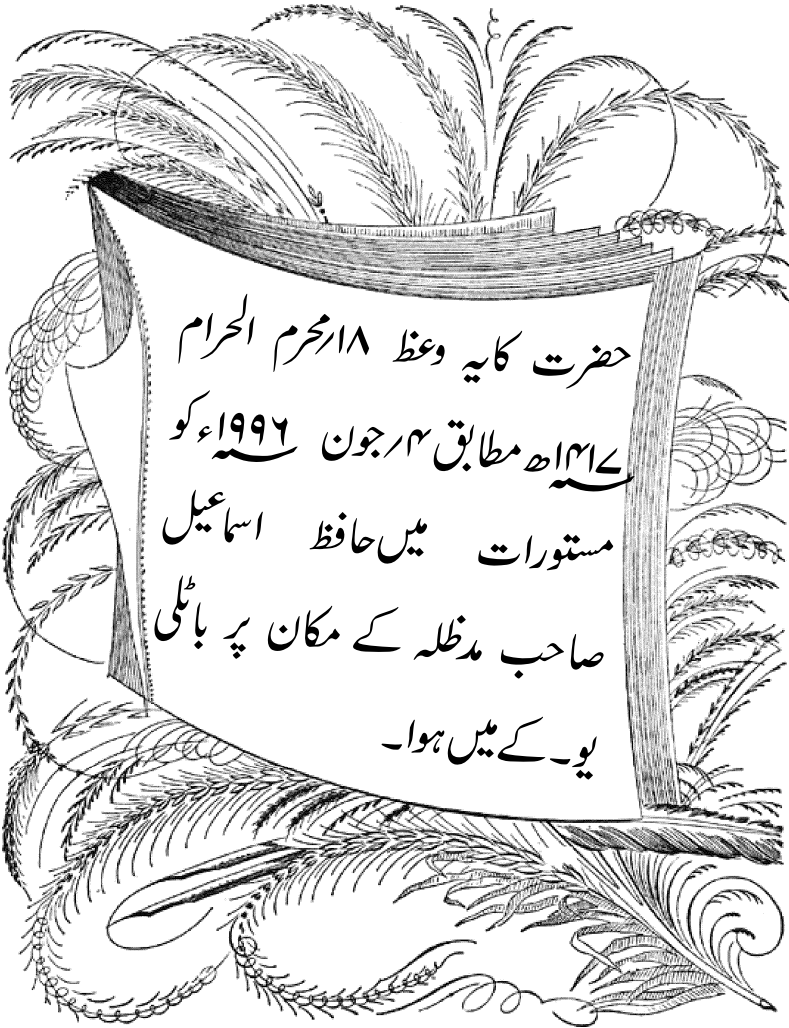 حضرت کایہ وعظ ۱۸؍محرم الحرام
۱۴۱۷ھ مطابق ۴؍جون ۱۹۹۶ء کو
مستورات میں حافظ اسماعیل
صاحب مدظلہ کے مکان پر باٹلی
یو۔کے میں ہوا۔